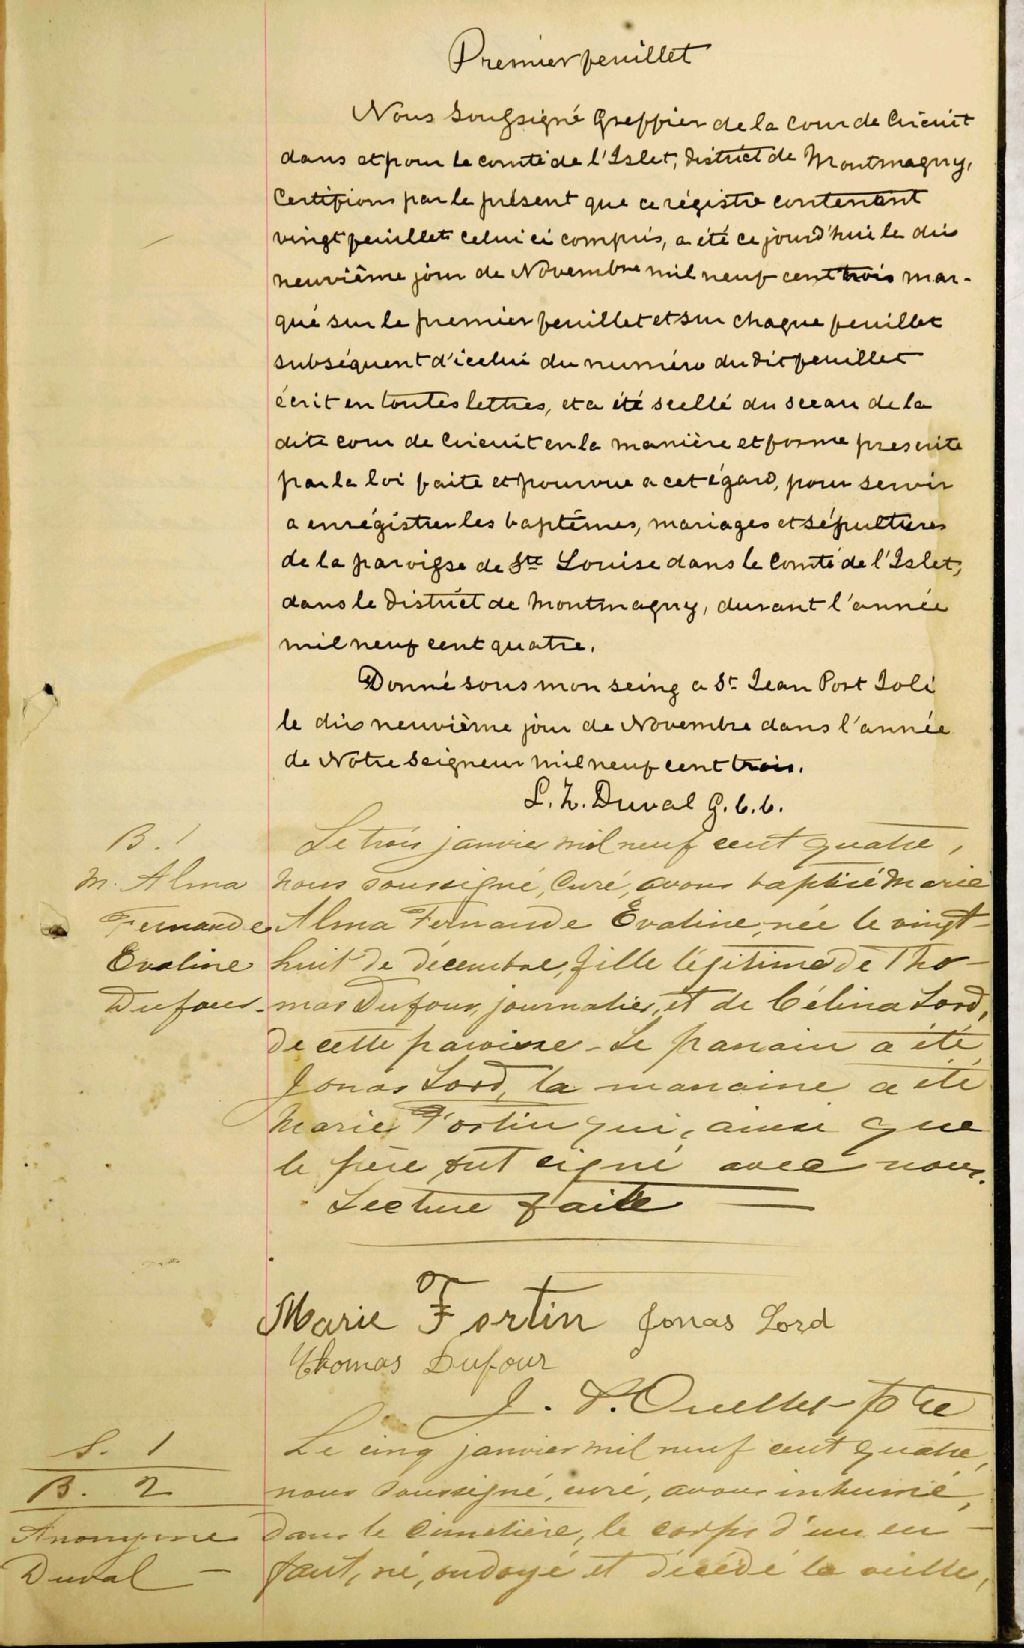 Premier feuillet
Nous Soussigné Greffier de la Cour de Circuit
dans et pour le comté de l'Islet, district de Montmagny,
Certifions par le présent que ce régistre contenant
vingt feuillets celui ci compris, a été ce jourd'hui le dix
neuvième jour de Novembre mil neuf cent trois mar-
qué sur le premier feuillet et sur chaque feuillet
subséquent d'icelui du numéro du dit feuillet
écrit en toutes lettres, et a été scellé du sceau de la
dite cour de Circuit en la manière et forme prescrite
par la loi faite et pourvue a cet égard, pour servir
a enrégistrer les baptêmes, mariages et sépultures
de la paroisse de Ste Louise dans le Comté de l'Islet,
dans le District de Montmagny, durant l'année
mil neuf cent quatre.
Donné sous mon seing a St Jean Port Joli
le dix neuvième jour de Novembre dans l'année
de Notre Seigneur mil neuf cent trois.
L. Z. Duval G.C.C.
B. 1
M. Alma
Fernande
Evaline
Dufour.
Le trois janvier mil neuf cent quatre,
nous soussigné, Curé, avons baptisé Marie
Alma Fernande Evaline, née le vingt-
huit de décembre, fille légitime de Tho-
mas Dufour, journalier, et de Célina Lord,
de cette paroisse - Le parrain a été
Jonas Lord, la marraine a été
Marie Fortin qui, ainsi que
le père ont signé avec nous.
Lecture faite
Marie Fortin Jonas Lord
Thomas Dufour
J. Ouellet ptre
S. 1
B. 2
Anonyme
Duval -
Le cinq janvier mil neuf cent quatre,
nous soussigné, curé, avons inhumé,
dans le cimetière, le corps d'un en-
fant, né, ondoyé et décédé la veille,